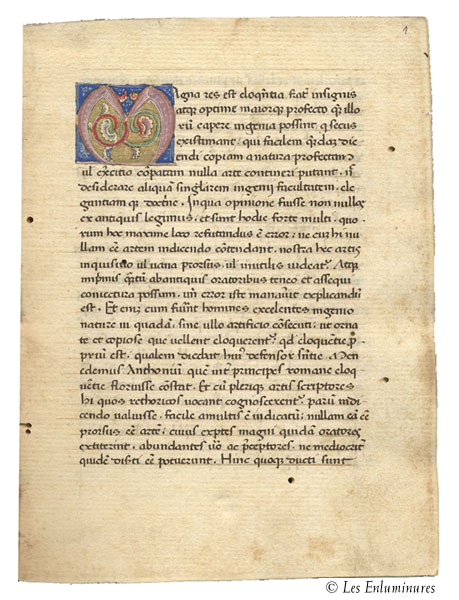 1
Magna res est eloquẽtia frat̃ insignis
atq̃ optime maiorq̃ profecto q̃ illo
rũ capere ingenia possint, q̃ secus
existimant; qui facilem q̃ndaz dic
endi copiam a natura profectam
ul exercitio copatam nulla arte contineri putant, nõ
desiderare aliquã singlarem ingenii facultatem, ele
gantiam q̃ doctrine. In qua opinione fuisse non nullos
ex antiquis legimus, et sunt hodie forte multi, quo
rum hoc maxime loco refutandus ẽ error; ne cur hi nu
llam cẽ artem in dicendo contendant, nostra hec artis
inquisitio ul vana prorsus, ul inutilis videat. Atq̃
inprimis quãtũ ab antiquis oratoribus teneo et assequi
coniectura possum, un error iste manauit explicandũ
est. Et enim cum fuerint homines excelentes ingenio
nature in quadã, sine ullo artificio consecuti; ut orna
te et copiose que vellent eloquerent. qd eloquentie p̃
priũ est, qualem dicebat huius defensor sñtie. Men
edemus Anthoniũ, que int principes romane eloq
uẽtie floruisse cõstat. Et cũ pleriq̃ artis scriptores
hi quos rethoricos vocant cognoscerent parũ in di
cendo valuisse, facile a multis ẽ indicatũ; nullam eã cẽ
prorsus cẽ arte; cuius exptes magni quidã oratores
extiterint, abundantes uõ ac p̃ceptores, ne mediocrit
quidẽ diserti cẽ potuerunt. Hinc quoq̃ ducti sunt
© Les Enluminures